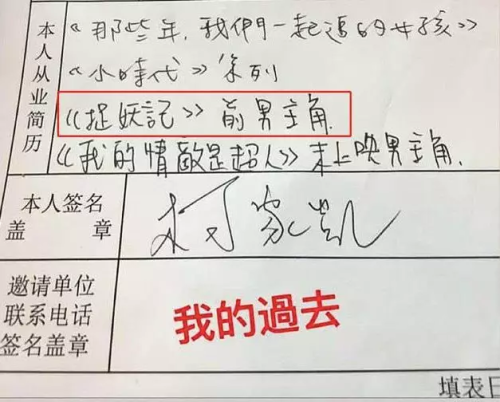 本人从业简历
《那些年,我們一起追的女孩》
《小時代》系列
《捉妖記》前男主角
《我的情敵是超人》未上映男主角.
本人签名
盖 章
柯家凱
邀请单位
联系电话
签名盖章
我的過去
填表日